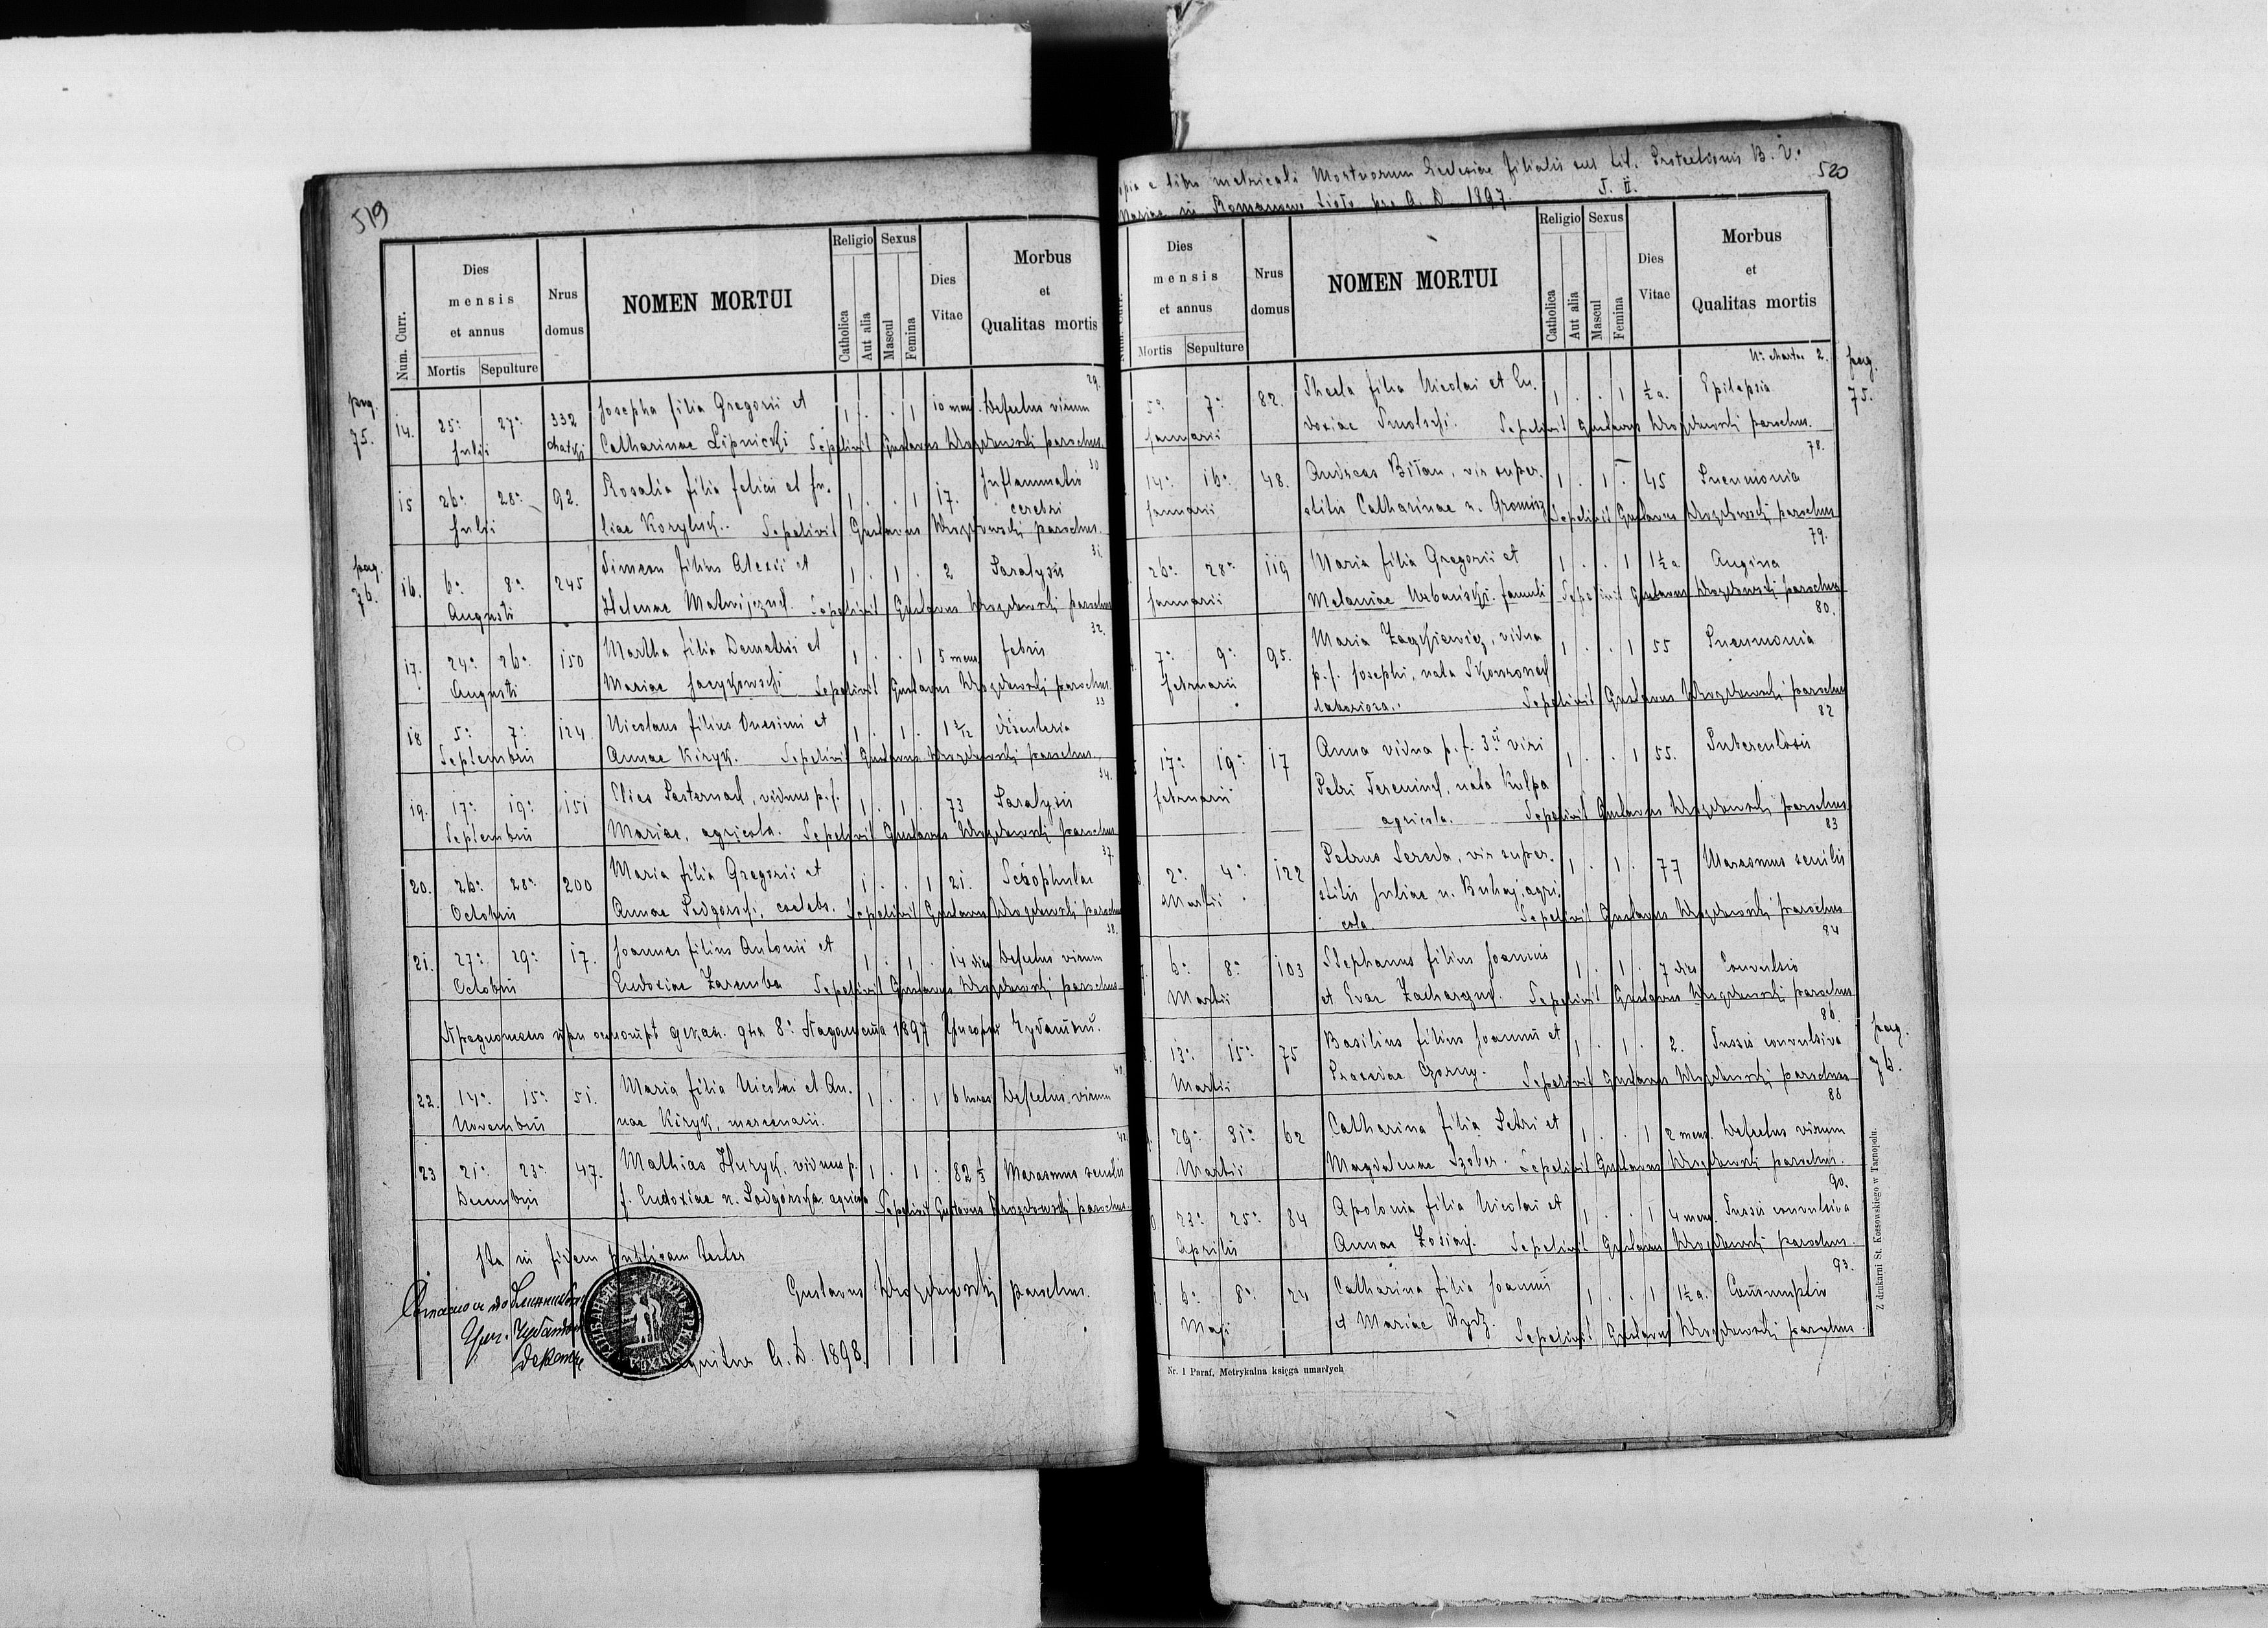 519
Num. Curr. Dies mensis et annus Nrus domus NOMEN MORTUI Religio Sexus Dies Vitae Morbus et Qualitas mortis
Mortis Sepulture Catholica Aut alia Mascul Femina
29.
pag. 75. 14. 25: 27: 332 Josepha filia Gregorii et 1 . . 1 10 mens. Defectus virium
Julii Chatki Catharinae Lipnicki Sepelivit Gustavus Drozdowski parochus.
30
15 26: 28: 92. Rosalia filia felicis et Ju- 1 . . 1 17. Inflammatio cerebri
Julii liae Koryluk. Sepelivit Gustavus Drozdowski parochus.
31.
pag. 76. 16. 6: 8: 245 Simeon filius Alexii et 1 . 1 . 2 Paralysis
Augusti Helenae Matwijczuk. Sepelivit Gustavus Drozdowski parochus
32.
17. 24: 26: 150 Martha filia Demetrii et 1 . . 1 5 mens. febris
Augusti Mariae Jacykowski Sepelivit Gustavus Drozdowski parochus.
33
18 5: 7: 124. Nicolaus filius Onesimi et 1 . 1 . 1 3/12 disenteria
Septembris Annae Kiryk. Sepelivit Gustavus Drozdowski parochus.
34.
19. 17: 19: 151 Elias Pasternak, viduus p. f. 1 . 1 . 73 Paralysis
Septembris Mariae, agricola. Sepelivit Gustavus Drozdowski parochus
37.
20. 26: 28: 200 Maria filia Gregorii et 1 . . 1 21. Scrophulae
Octobris Annae Podgorski, caelebs. Sepelivit Gustavus Drozdowski parochus
38.
21. 27: 29: 17. Joannes filius Antonii et 1 . 1 . 14 dies Defectus virium
Octobris Eudoxiae Zaremba Sepelivit Gustavus Drozdowski parochus.
декан. дня 8: Падолиста 1897
40.
22. 14: 15: 51. Maria filia Nicolai et An- 1 . . 1 6 horas Defectus virium
Novembris nae Kiryk, mercenarii.
42.
23 21: 23: 47. Mathias Huryk, viduus p. 1 . 1 . 82 1/2 Marasmus senilis
Decembris f. Eudoxiae n. Podgórska agricola Sepelivit Gustavus Drozdowski parochus.
Ita in fidem publicam testor
Gustavus Drozdowski parochus.
A. D. 1898.
520
Copia e libro metricali Mortuorum Ecclesiae filialis sub tit. Protectionis B. V.
Mariae in Romanowe Sioło pro A. D. 1897. T. II.
Num. Curr. Dies mensis et annus Nrus domus NOMEN MORTUI Religio Sexus Dies Vitae Morbus et Qualitas mortis
Mortis Sepulture Catholica Aut alia Mascul Femina
pag. 75.
5: 7: 82. Thecla filia Nicolai et Eu- 1 . . 1 1/2 a. Epilepsia
Januarii doxiae Smolski. Sepelivit Gustavus Drozdowski parochus.
78.
14: 16: 48. Andreas Biłan, vir super- 1 . 1 . 45 Pneumonia
Januarii stitis Catharinae n. Gromisz Sepelivit Gustavus Drozdowski parochus
79.
26: 28: 119 Maria filia Gregorii et 1 . . 1 1 1/2 a Angina
Januarii Melaniae Urbański. famuli Sepelivit Gustavus Drozdowski parochus
80.
7: 9: 95. Maria Zazkiewicz, vidua 1 . . 1 55 Pneumonia
februarii p. f. Josephi, nata Skowronek
laboriosa. Sepelivit Gustavus Drozdowski parochus
82
17: 19: 17 Anna vidua p. f. 3ii viri 1 . . 1 55. Tuberculosis
februarii Petri Tereniuk, nata Kulpa
agricola. Sepelivit Gustavus Drozdowski parochus
83
2: 4: 122 Petrus Sereda, vir super- 1 . 1 . 77 Marasmus senilis
Martii stitis Juliae n. Buhaj, agri-
cola. Sepelivit Gustavus Drozdowski parochus
84
6: 8: 103 Stephanus filius Joannis 1 . 1 . 7 dies Convulsio
Martii et Evae Zacharczuk. Sepelivit Gustavus Drozdowski parochus
86.
pag. 76.
13: 15: 75 Basilius filius Joannis et 1 . 1 . 2. Tussis convulsiva
Martii Praxedae Czorny. Sepelivit Gustavus Drozdowski parochus
88
29: 31: 62 Catharina filia Petri et 1 . . 1 2 mens. Defectus virium
Martii Magdalenae Szober. Sepelivit Gustavus Drozdowski parochus.
90.
23: 25: 84 Apolonia filia Nicolai et 1 . . 1 4 mens. Tussis convulsiva
Aprilis Annae Zosiak. Sepelivit Gustavus Drozdowski parochus.
93.
6: 8: 24 Catharina filia Joannis 1 . . 1 1 1/2 a. Consumptio
Maji et Mariae Rydz. Sepelivit Gustavus Drozdowski parochus.
Nr. 1 Paraf. Metrykalna księga umarłych
Z drukarni St. Kossowskiego w Tarnopolu.